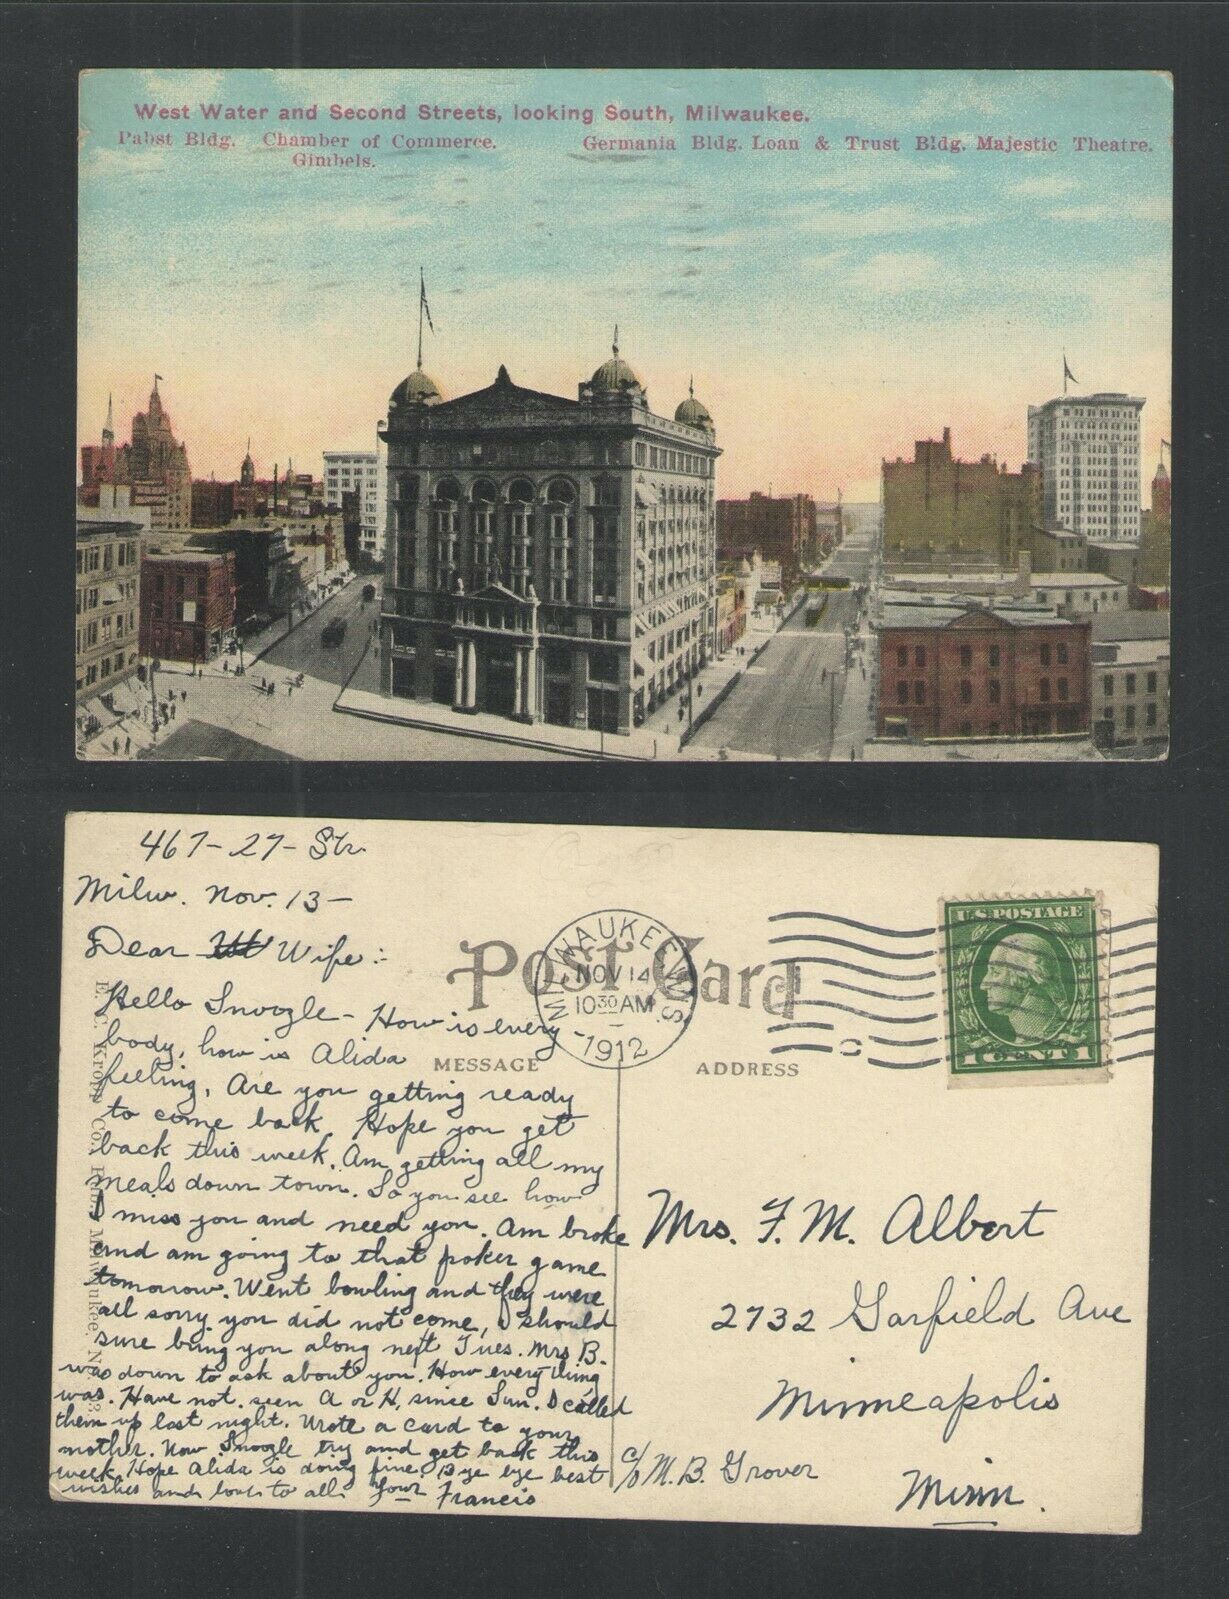 West Water and Second Streets, looking South, Milwaukee.
Pabst Bldg. Chamber of Commerce. Germania Bldg. Loan & Trust Bldg. Majestic Theatre.
Gimbels.
467-27-Str.
Milw. Nov. 13-
Dear Wife:-
Hello Snoozle - How is every-
body, how is Alida
feeling, Are you getting ready
to come back. Hope you get
back this week. Am getting all my
meals down town. So you see how
I miss you and need you. Am broke
and am going to that poker game
tomorrow. Went bowling and they were
all sorry you did not come, I should
sure bring you along next Tues. Mrs B.
was down to ask about you. How everything
was. Have not seen A or H, since Sun. I called
them up last night. Wrote a card to your
mother. Now Snoozle try and get back this
week. Hope Alida is doing fine. Bye bye best
wishes and love to all. Your Francis
Post Card
MESSAGE
ADDRESS
MILWAUKEE, WIS.
NOV 14
10 30 AM
1912
U.S. POSTAGE
E. C. Kropp Co., Milwaukee. No.
Mrs. F. M. Albert
2732 Garfield Ave
Minneapolis
c/o M. B. Grover
Minn.